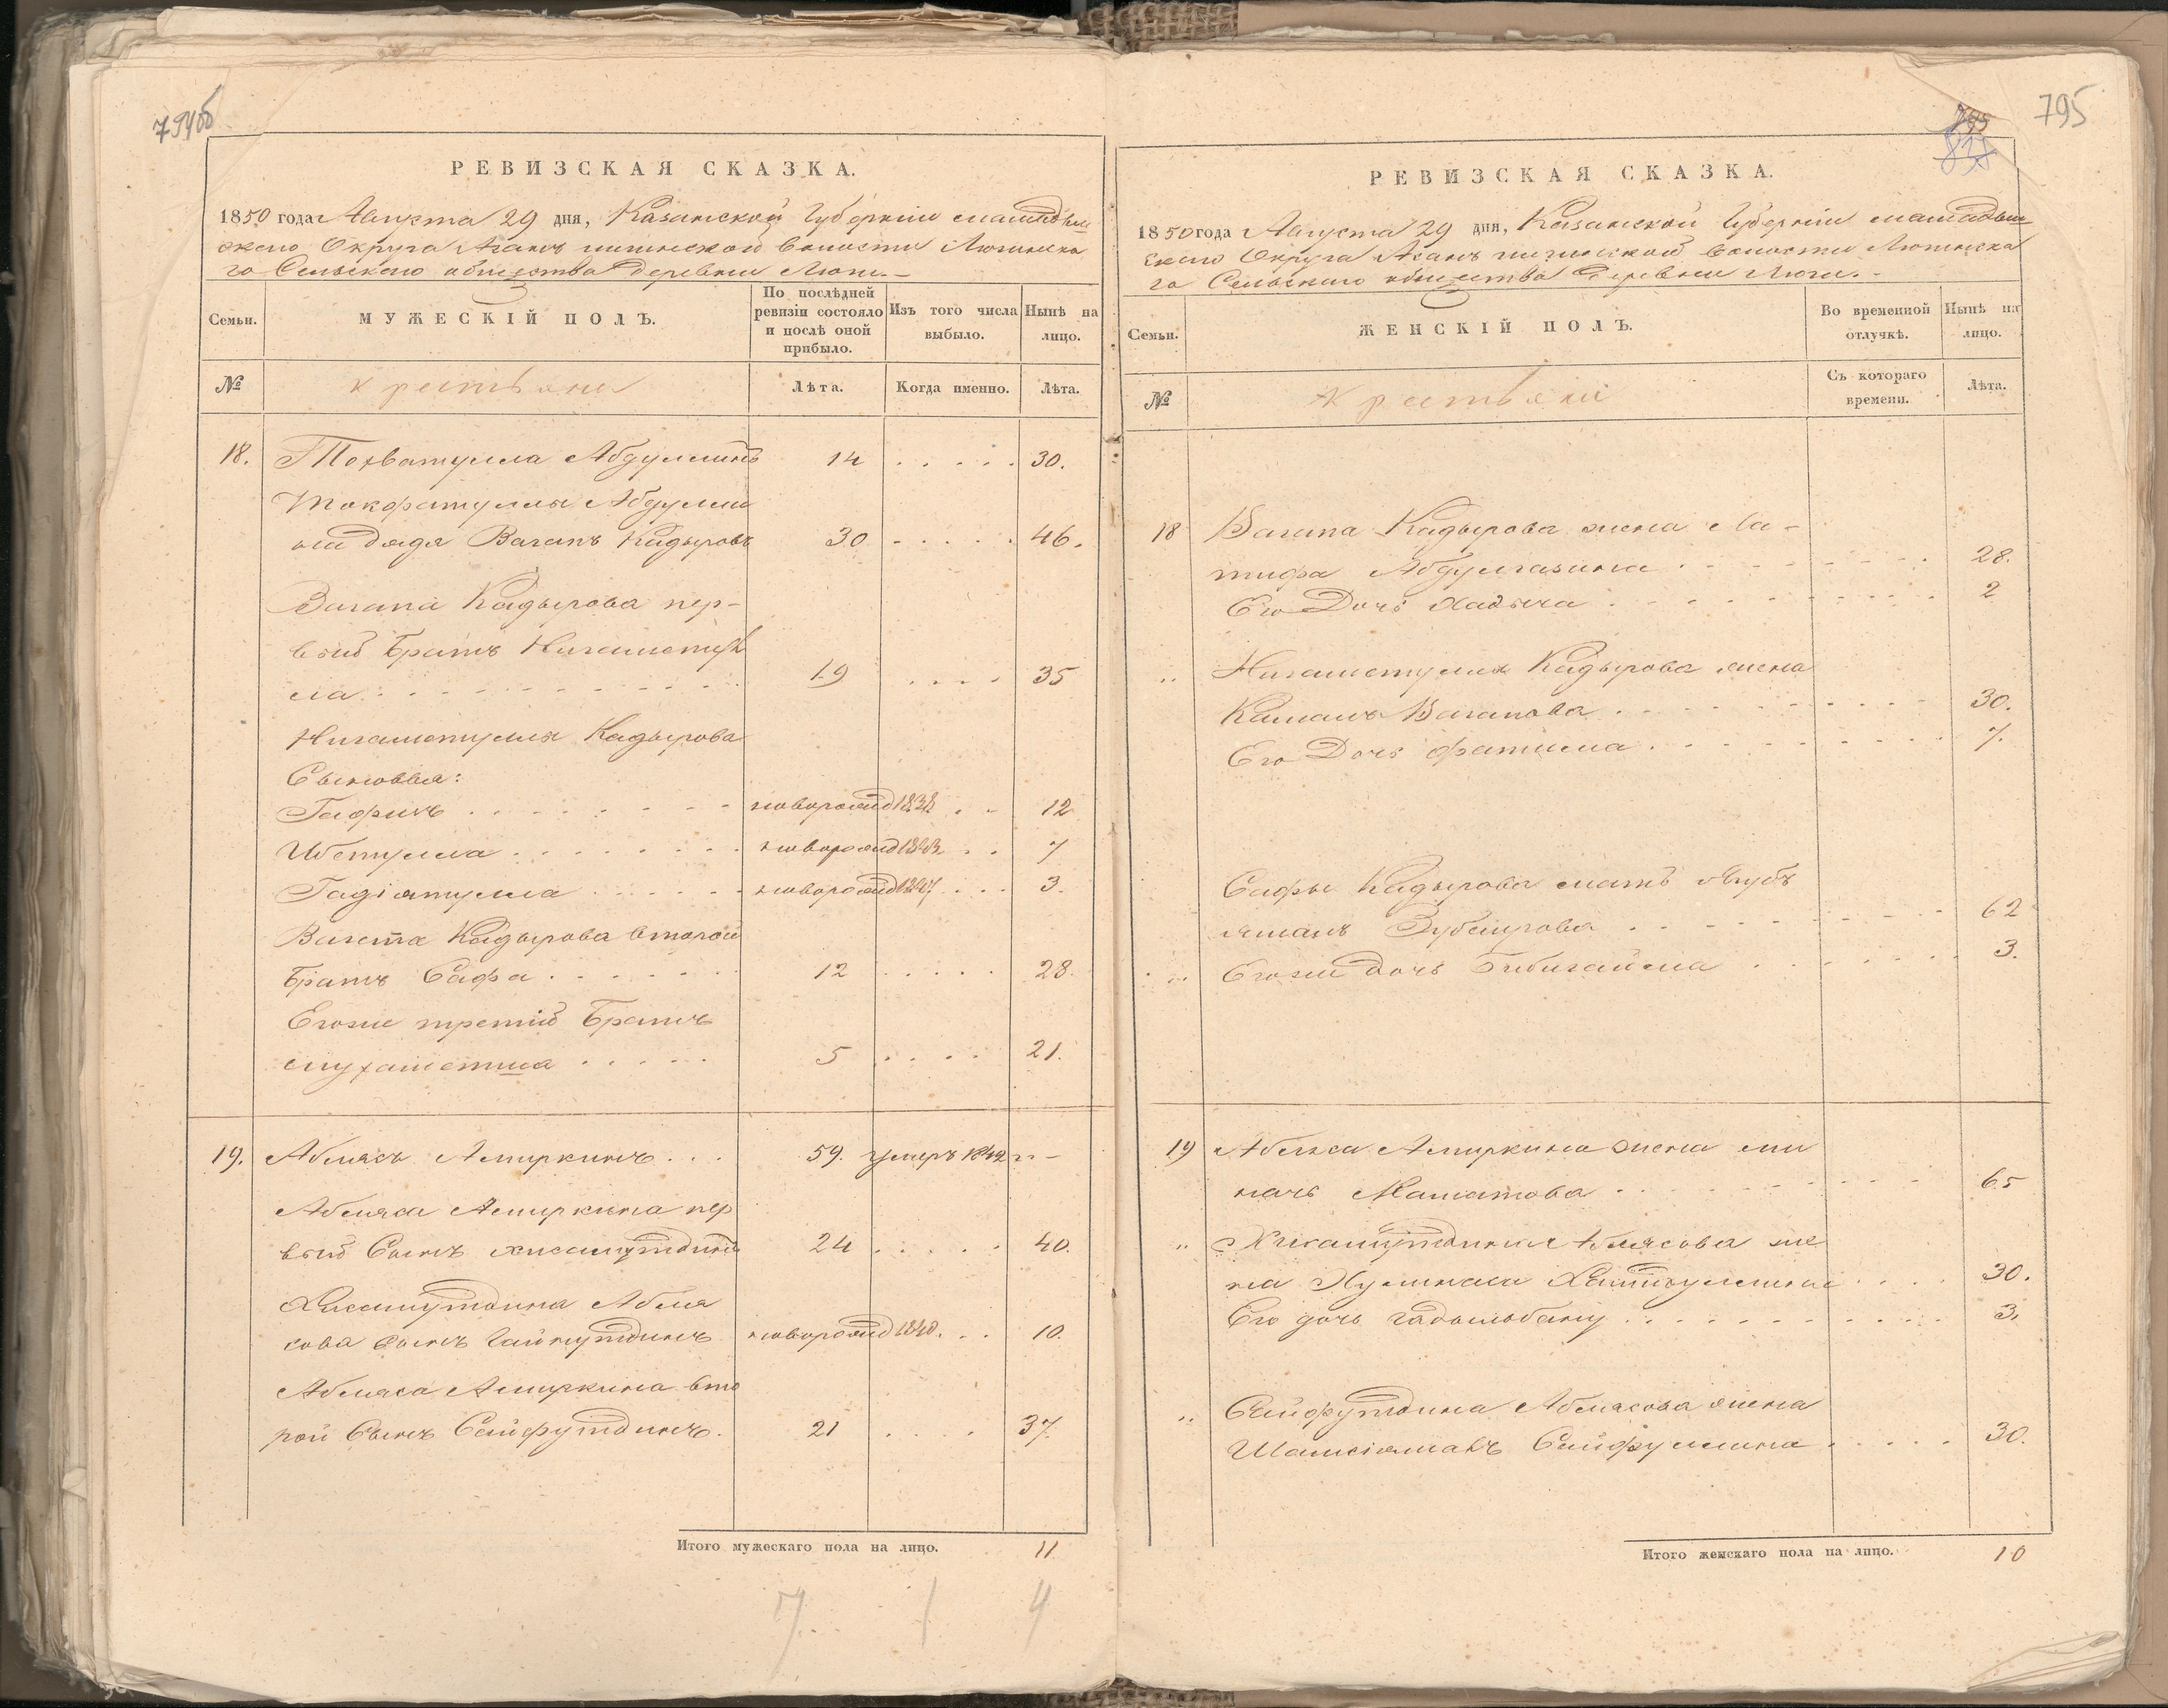 794об
РЕВИЗСКАЯ СКАЗКА.
1850 года Августа 29 дня, Казанской Губерніи мамадыш
скаго Округа Асанъ илгинской волости Люгинска
го Сельскаго общества деревни Люги.-
Семьи.
МУЖЕСКІЙ ПОЛЪ.
По послѣдней ревизіи состояло и послѣ оной прибыло.
Изъ того числа выбыло.
Нынѣ на лицо.
№
крестьяне
Лѣта.
Когда именно.
Лѣта.
18. Абдуллинъ 14 . . . . . 30.
Абдулли
на дядя Вагапъ Кадыровъ 30 . . . . . 46.
Вагапа Кадырова пер-
вый Братъ Нигаметул
ла . . . 19 . . . . 35
Нигаметуллы Кадырова
Сыновья:
Гафинъ . . . новорожд 1838 . . 12
Ибетулла . . . новорожд 1843 . . 7
Гадіятулла . . . новорожд 1847 . . . 3.
Вагапа Кадырова второй
Братъ Сафа . . . 12 . . . . . 28.
Егоже третій Братъ
мухаметша . . . . . 5 . . . . 21.
19. Аблясъ Амиркинъ . . . 59. умеръ 1842 "-
Абляса Амиркина пер
вый Сынъ хисамутдинъ 24 . . . . . 40.
Хисамутдина Абля
сова Сынъ Гайнутдинъ новорожд 1840. . . 10.
Абляса Амиркина вто
рой Сынъ Сейфутдинъ. 21 . . . . 37.
Итого мужескаго пола на лицо. 11
7 1 4
795
795
РЕВИЗСКАЯ СКАЗКА.
1850 года Августа 29 дня, Казанской Губерніи мамадыш
скаго Округа Асанъ илгинской волости Люгинска
го Сельскаго общества Деревни Люги.-
Семьи.
ЖЕНСКІЙ ПОЛЪ.
Во временной отлучкѣ.
Нынѣ на лицо.
№
крестьяне
Съ котораго времени.
Лѣта.
18 Вагапа Кадырова жена Ла-
тифа Абдулгазина . . . 28.
Его Дочь хадыча . . . 2
" Нигаметуллы Кадырова жена
Камаль Вагапова . . . 30.
Его Дочь фатима . . . 7.
Сафы Кадырова мать Якуб
ямаль Зубаирова . . . 62
" Егоже дочь Бибигайша . . . 3.
19 Абляса Амиркина жена ми
начь Маматова . . . 65
" Хисамутдина Аблясова же
на . . . 30.
Его дочь Гадильбану . . . 3,
" Сейфутдина Аблясова жена
Шамсіямаль Сейфуллина . . . 30.
Итого женскаго пола на лицо. 10